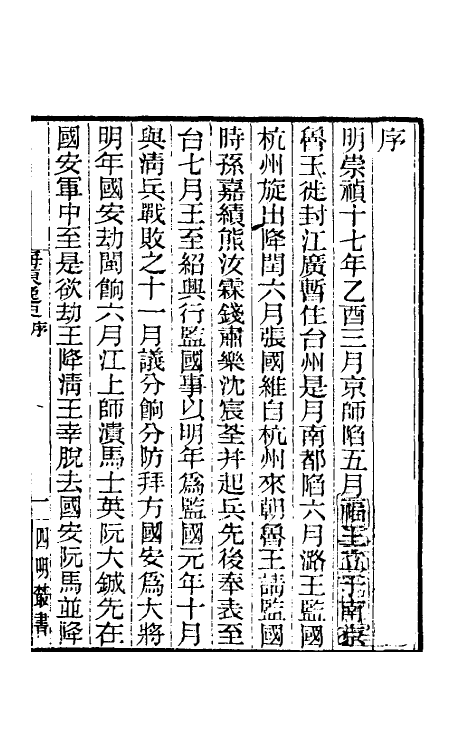 序
明崇禎十七年乙酉三月京師陷五月福王立于南京
魯王徙封江廣暫住台州是月南都陷六月潞王監國
杭州旋出降閏六月張國維自杭州來朝魯王請監國
時孫嘉績熊汝霖錢肅樂沈宸荃并起兵先後奉表至
台七月王至紹興行監國事以明年爲監國元年十月
與淸兵戰敗之十一月議分餉分防拜方國安爲大將
明年國安劫閩餉六月江上師潰馬士英阮大鋮先在
國安軍中至是欲劫王降淸王幸脫去國安阮馬並降
序
一
四明叢書